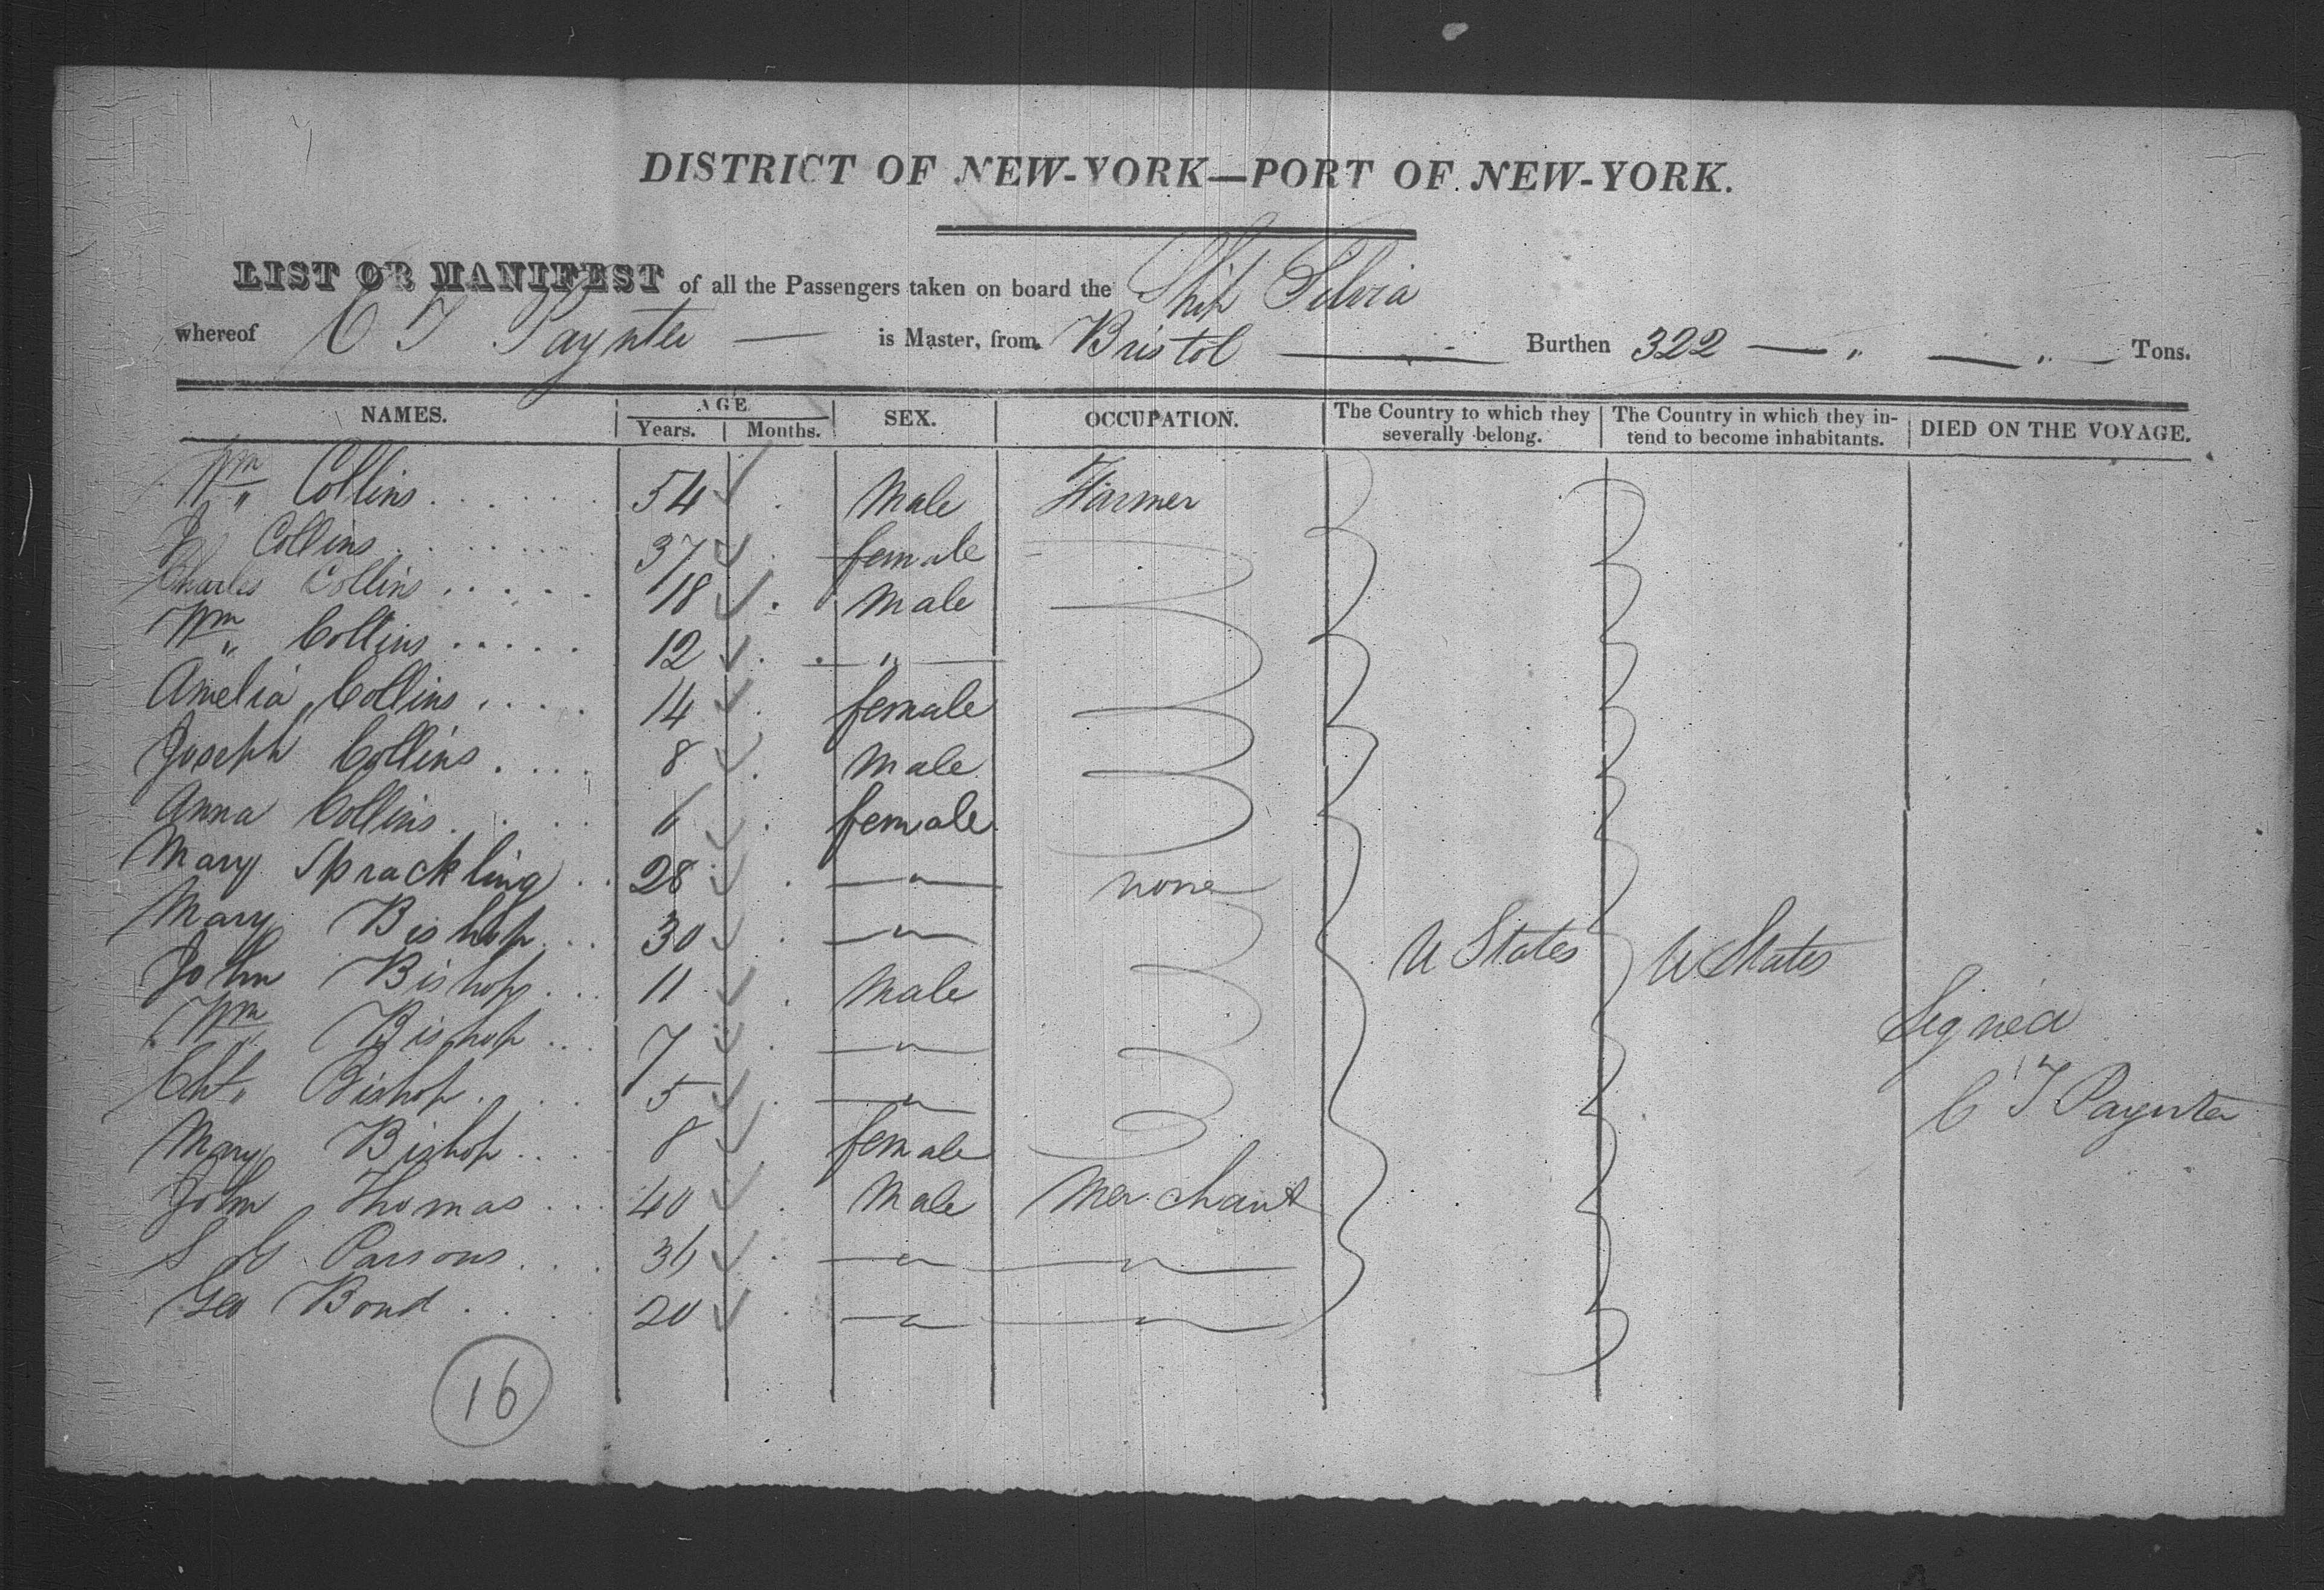 DISTRICT OF NEW-YORK—PORT OF NEW-YORK.
LIST OR MANIFEST of all the Passengers taken on board the Ship Silvia
whereof C T Paynter — is Master, from Bristol — Burthen 322 — „ — „ — Tons.
NAMES. AGE Years. Months. SEX. OCCUPATION. The Country to which they severally belong. The Country in which they intend to become inhabitants. DIED ON THE VOYAGE.
Wm „ Collins 54 Male Farmer
Collins 37 female
Charles Collins 18 Male
Wm „ Collins 12 — „ —
Amelia Collins 14 female
Joseph Collins 8 Male
Anna Collins 6 female
Mary Sprackling 28 — " — none
Mary Bishop 30 — " —
John Bishop 11 Male
U States U States
Wm „ Bishop 7 — " —
Signed
Cht „ Bishop 5 — " —
C T Paynter
Mary Bishop 8 female
John Thomas 40 Male Merchant
S Parsons 36 — " — — " —
Geo Bond 20 — " — — " —
16